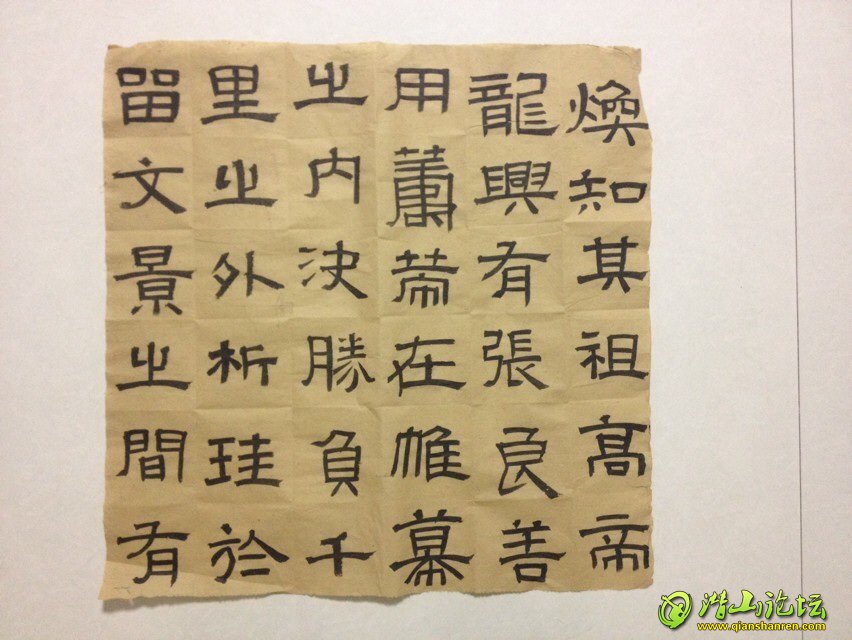 煥知其祖高帝
龍興有張良善
用籌策在帷幕
之內決勝負千
里之外析珪於
留文景之間有
潜山论坛
www.qianshanren.com